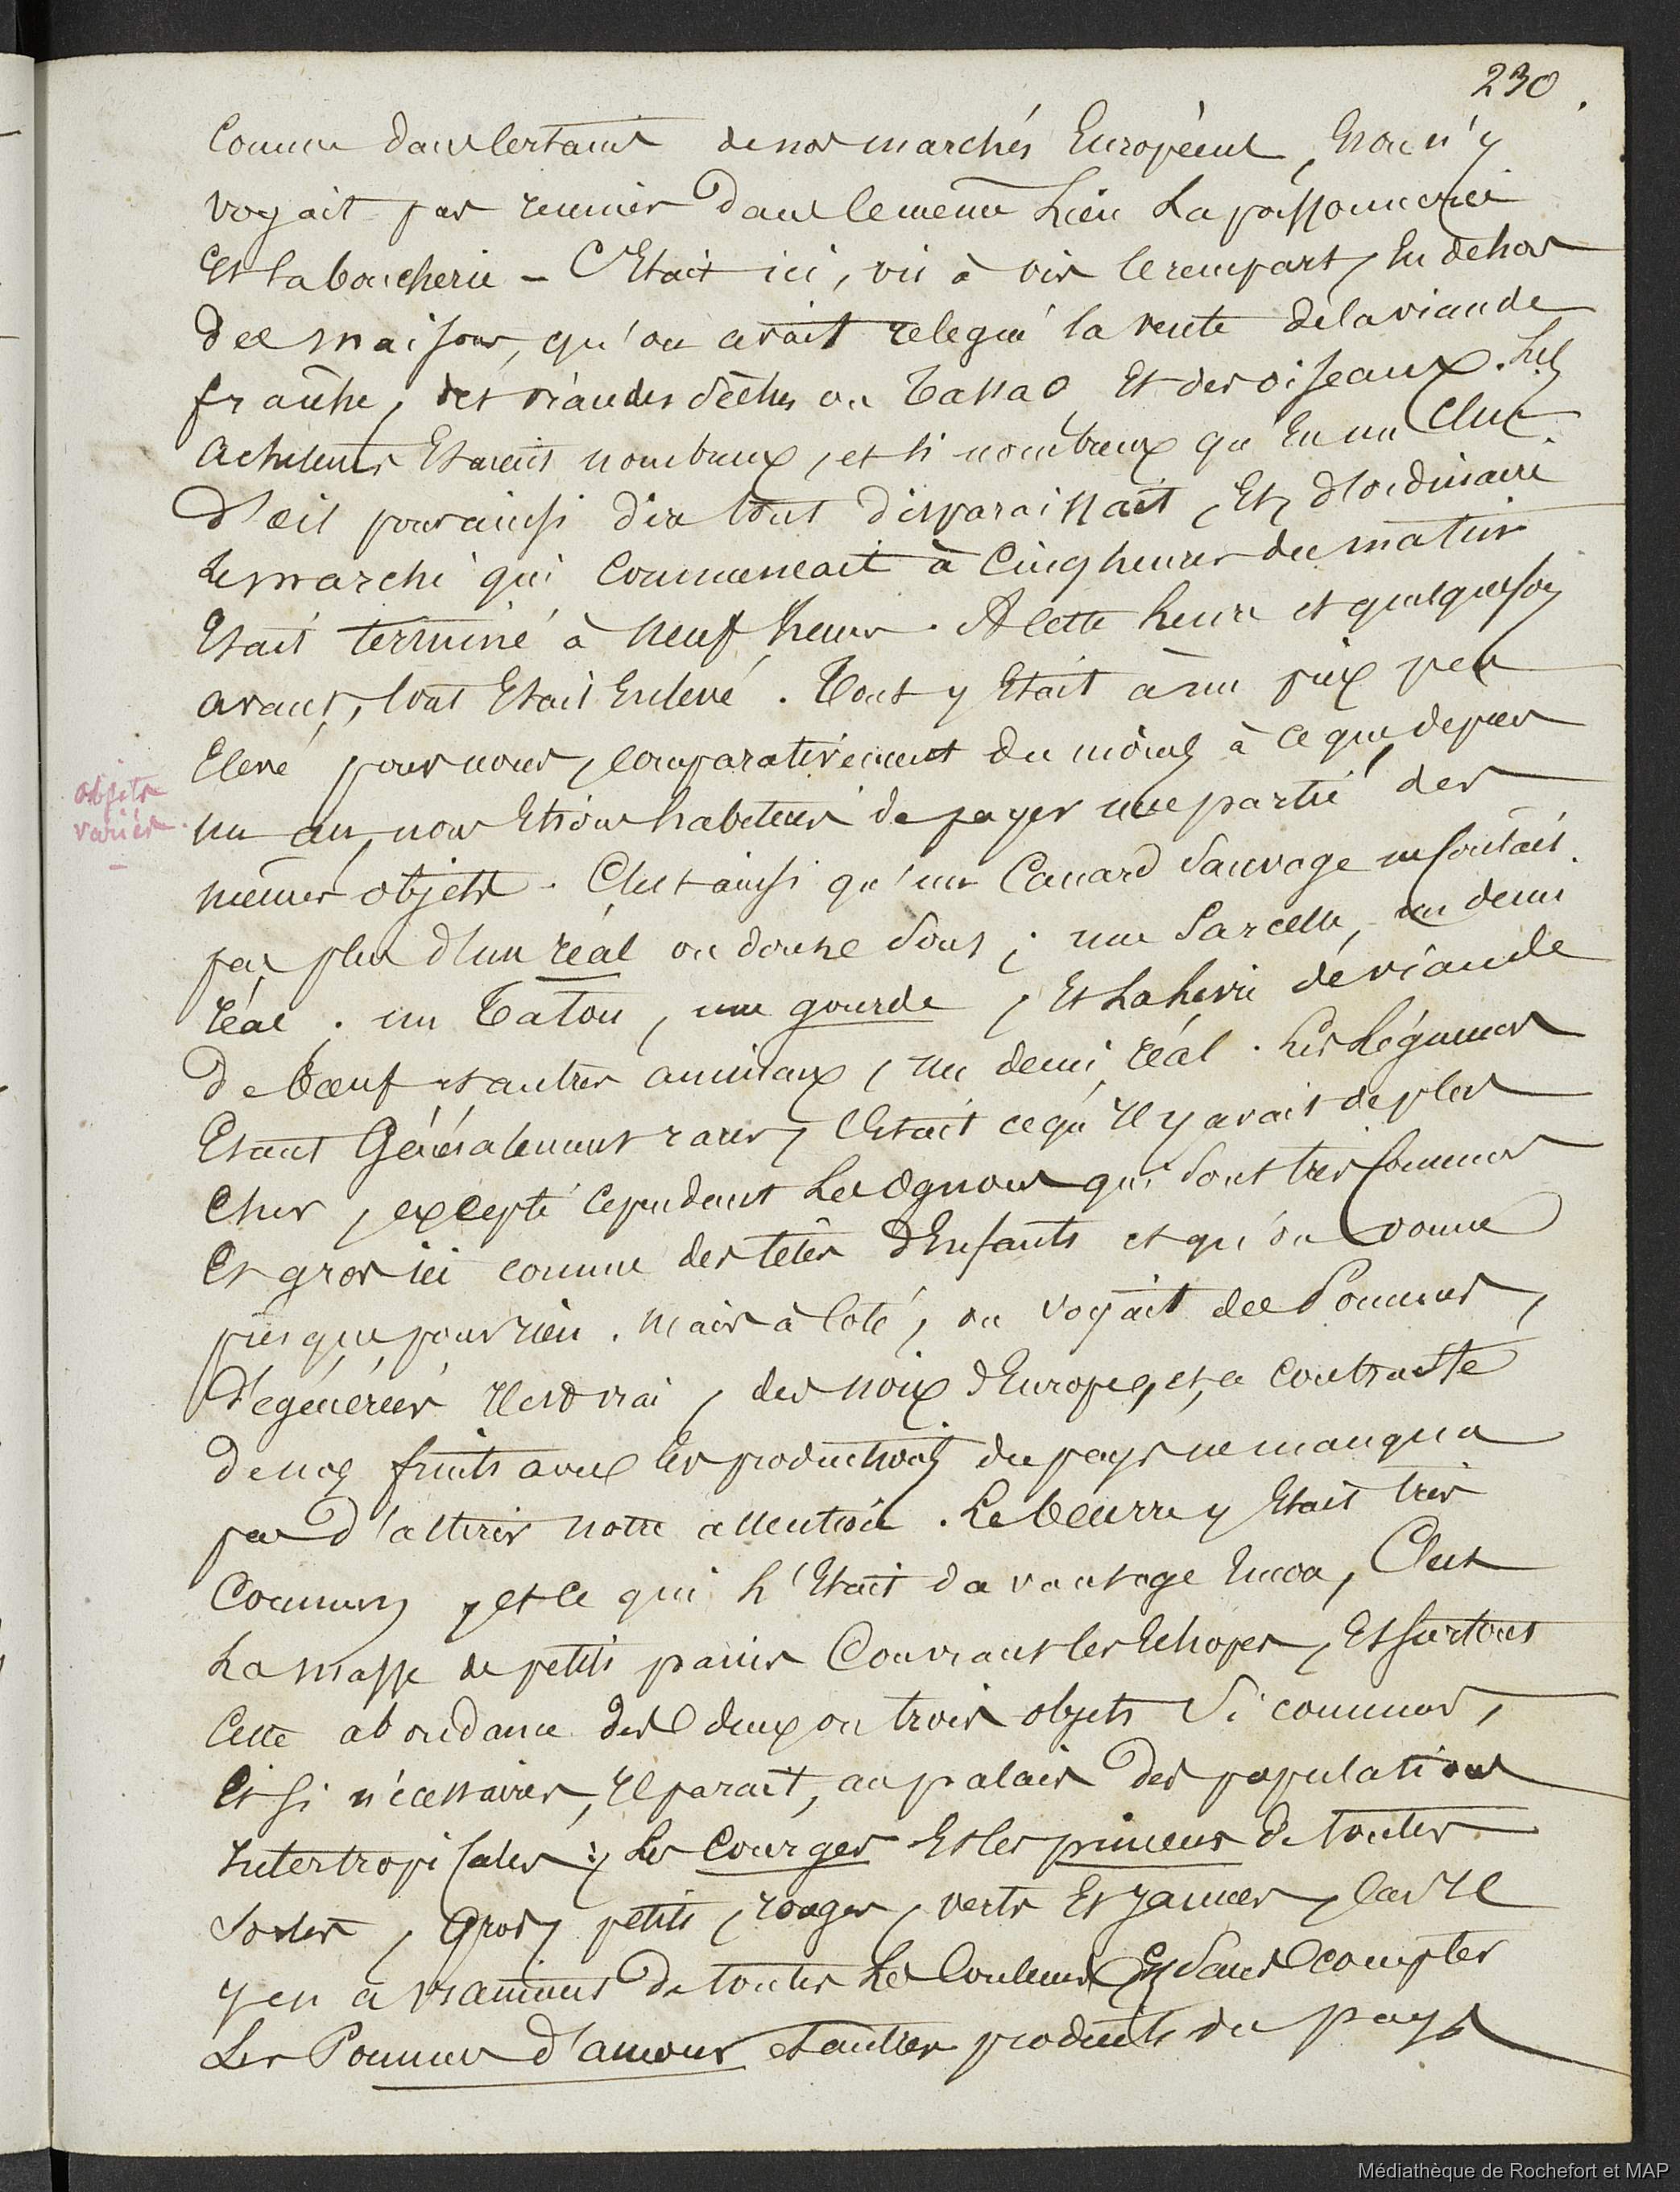 230.
Comme dans certains de nos marchés Européens, on n'y
voyait pas reunies dans le même Lieu La poissonnerie
Et la boucherie - C'Etait ici, vis à vis le rempart, En dehors
des maisons, qu'on avait relegué la vente de la viande
fraîche, des viandes sèches ou Tassao, Et des oiseaux. Les
acheteurs Etaient nombreux, et si nombreux qu'En un Clin
d'œil pour ainsi dire tout disparaissait, Et, d'ordinaire
Le marché qui Commencait à Cinq heures du matin
Etait terminé à neuf heures. A cette heure et quelquefois
avant, tout Etait Enlevé. Tout y Etait à un prix peu
Elevé pour nous, comparativement du moins à ce que, depuis
objets
variés
un an, nous Etions habitués de payer une partie des
mêmes objets. C'est ainsi qu'un Canard Sauvage ne Coutait
pas plus d'un réal ou douze Sous; une Sarcelle, un demi
réal. un Tatou, une gourde, Et La Livre de viande
de bœuf et autres animaux, un demi réal. Les Légumes
Etant Généralement rares, C'Etait ce qu'Il y avait de plus
Cher, excepté cependant Les Ognons qui Sont très Communs
Et gros ici comme des têtes d'Enfants et qu'on donne
presque pour rien. Mais à Coté, on voyait des Pommes,
dégénérées Il est vrai, des noix d'Europe, et, ce contraste
de nos fruits avec les productions du pays ne manqua
pas d'attirer notre attention. Le beurre y Etait très
Commun, et ce qui L'Etait davantage Encore, C'est
La masse de petits pains Couvrant les Echopes, Et surtout
Cette abondance des deux ou trois objets Si communs,
Et si nécessaires, Il parait, au palais des populations
Intertropicales: Les Courges Et les pimens de toutes
Sortes, Gros, petits, rouges, verts Et Jaunes, Car Il
y en a vraiment de toutes Les Couleurs Et Sans compter
Les Pommes d'amour et autres produits du pays
Médiathèque de Rochefort et MAP